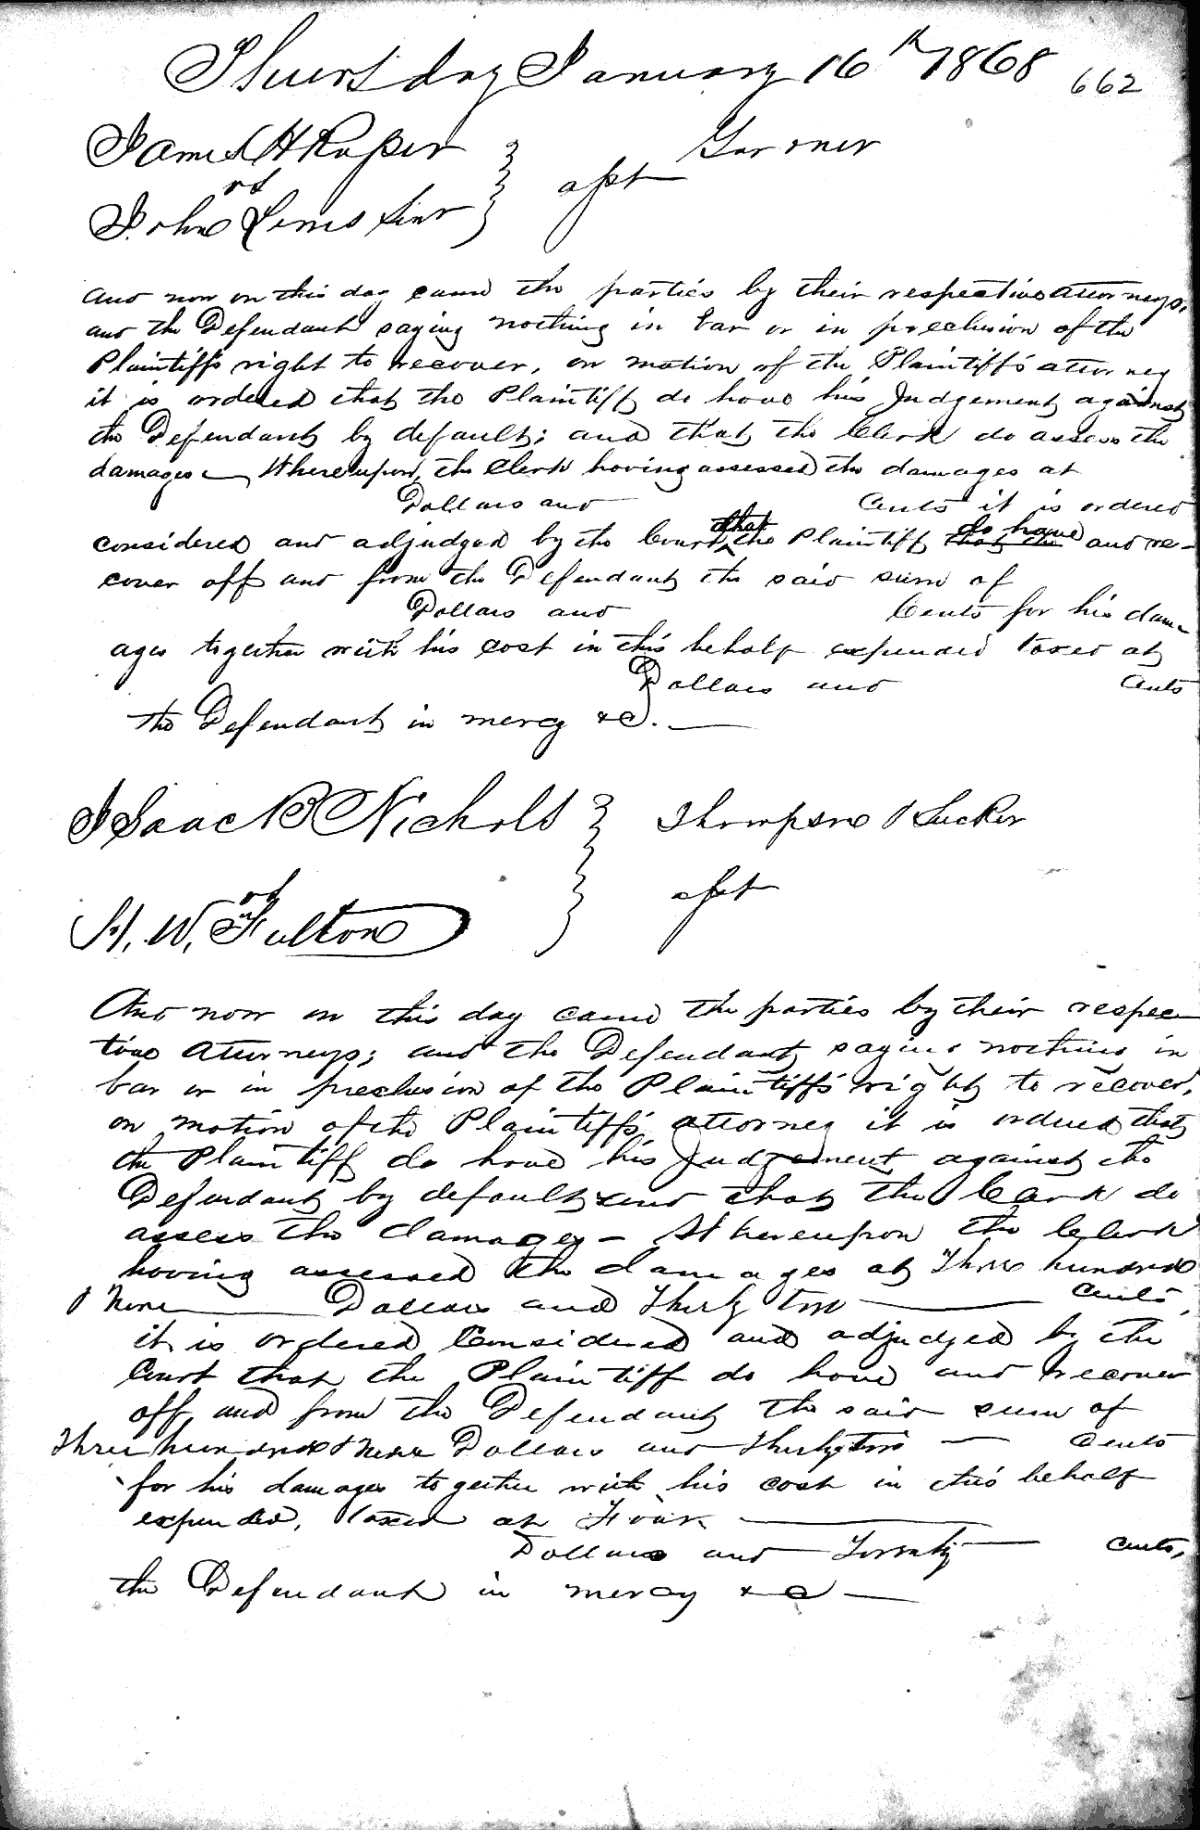 Thursday January 16th 1868 662
James H Roper
vs
John Lewis Senr
Gardner
apt
And now on this day came the parties by their respective attorneys,
and the Defendant saying nothing in bar or in preclusion of the
Plaintiffs right to recover, on motion of the Plaintiffs attorney
it is ordered that the Plaintiff do have his Judgement against
the Defendant by default; and that the Clerk do assess the
damages — Whereupon, the Clerk having assessed the damages at
Dollars and Cents it is ordered
considered and adjudged by the Court that the Plaintiff that the do have and re-
cover off and from the Defendant the said sum of
Dollars and Cents for his dam
ages together with his cost in this behalf expended taxed at
Dollars and Cents
the Defendant in mercy &c. —
Isaac N Nichols
vs
H. W. Fulton
Thompson & Tucker
apt
And now on this day came the parties by their respec
tive Attorneys; and the Defendant saying nothing in
bar or in preclusion of the Plaintiffs right to recover,
on motion of the Plaintiffs attorney it is ordered that
the Plaintiff do have his Judgement against the
Defendant by default and that the Clerk do
assess the damages — Whereupon the Clerk
having assessed the damages at Three hundred
& Nine — Dollars and Thirty two — Cents,
it is ordered Considered and adjudged by the
Court that the Plaintiff do have and recover
off and from the Defendant the said sum of
Three hundred & Nine Dollars and Thirty two — Cents
for his damages together with his cost in this behalf
expended, taxed at Four —
Dollars and Twenty — Cents,
the Defendant in mercy &c —